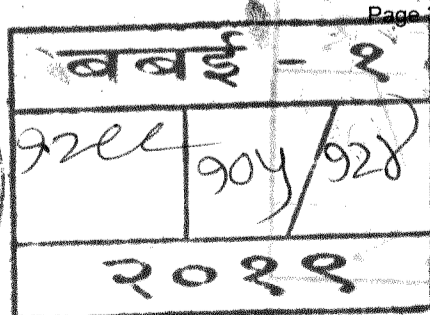 Page
बबई - १
१२९९ १०५/१२४
२०११